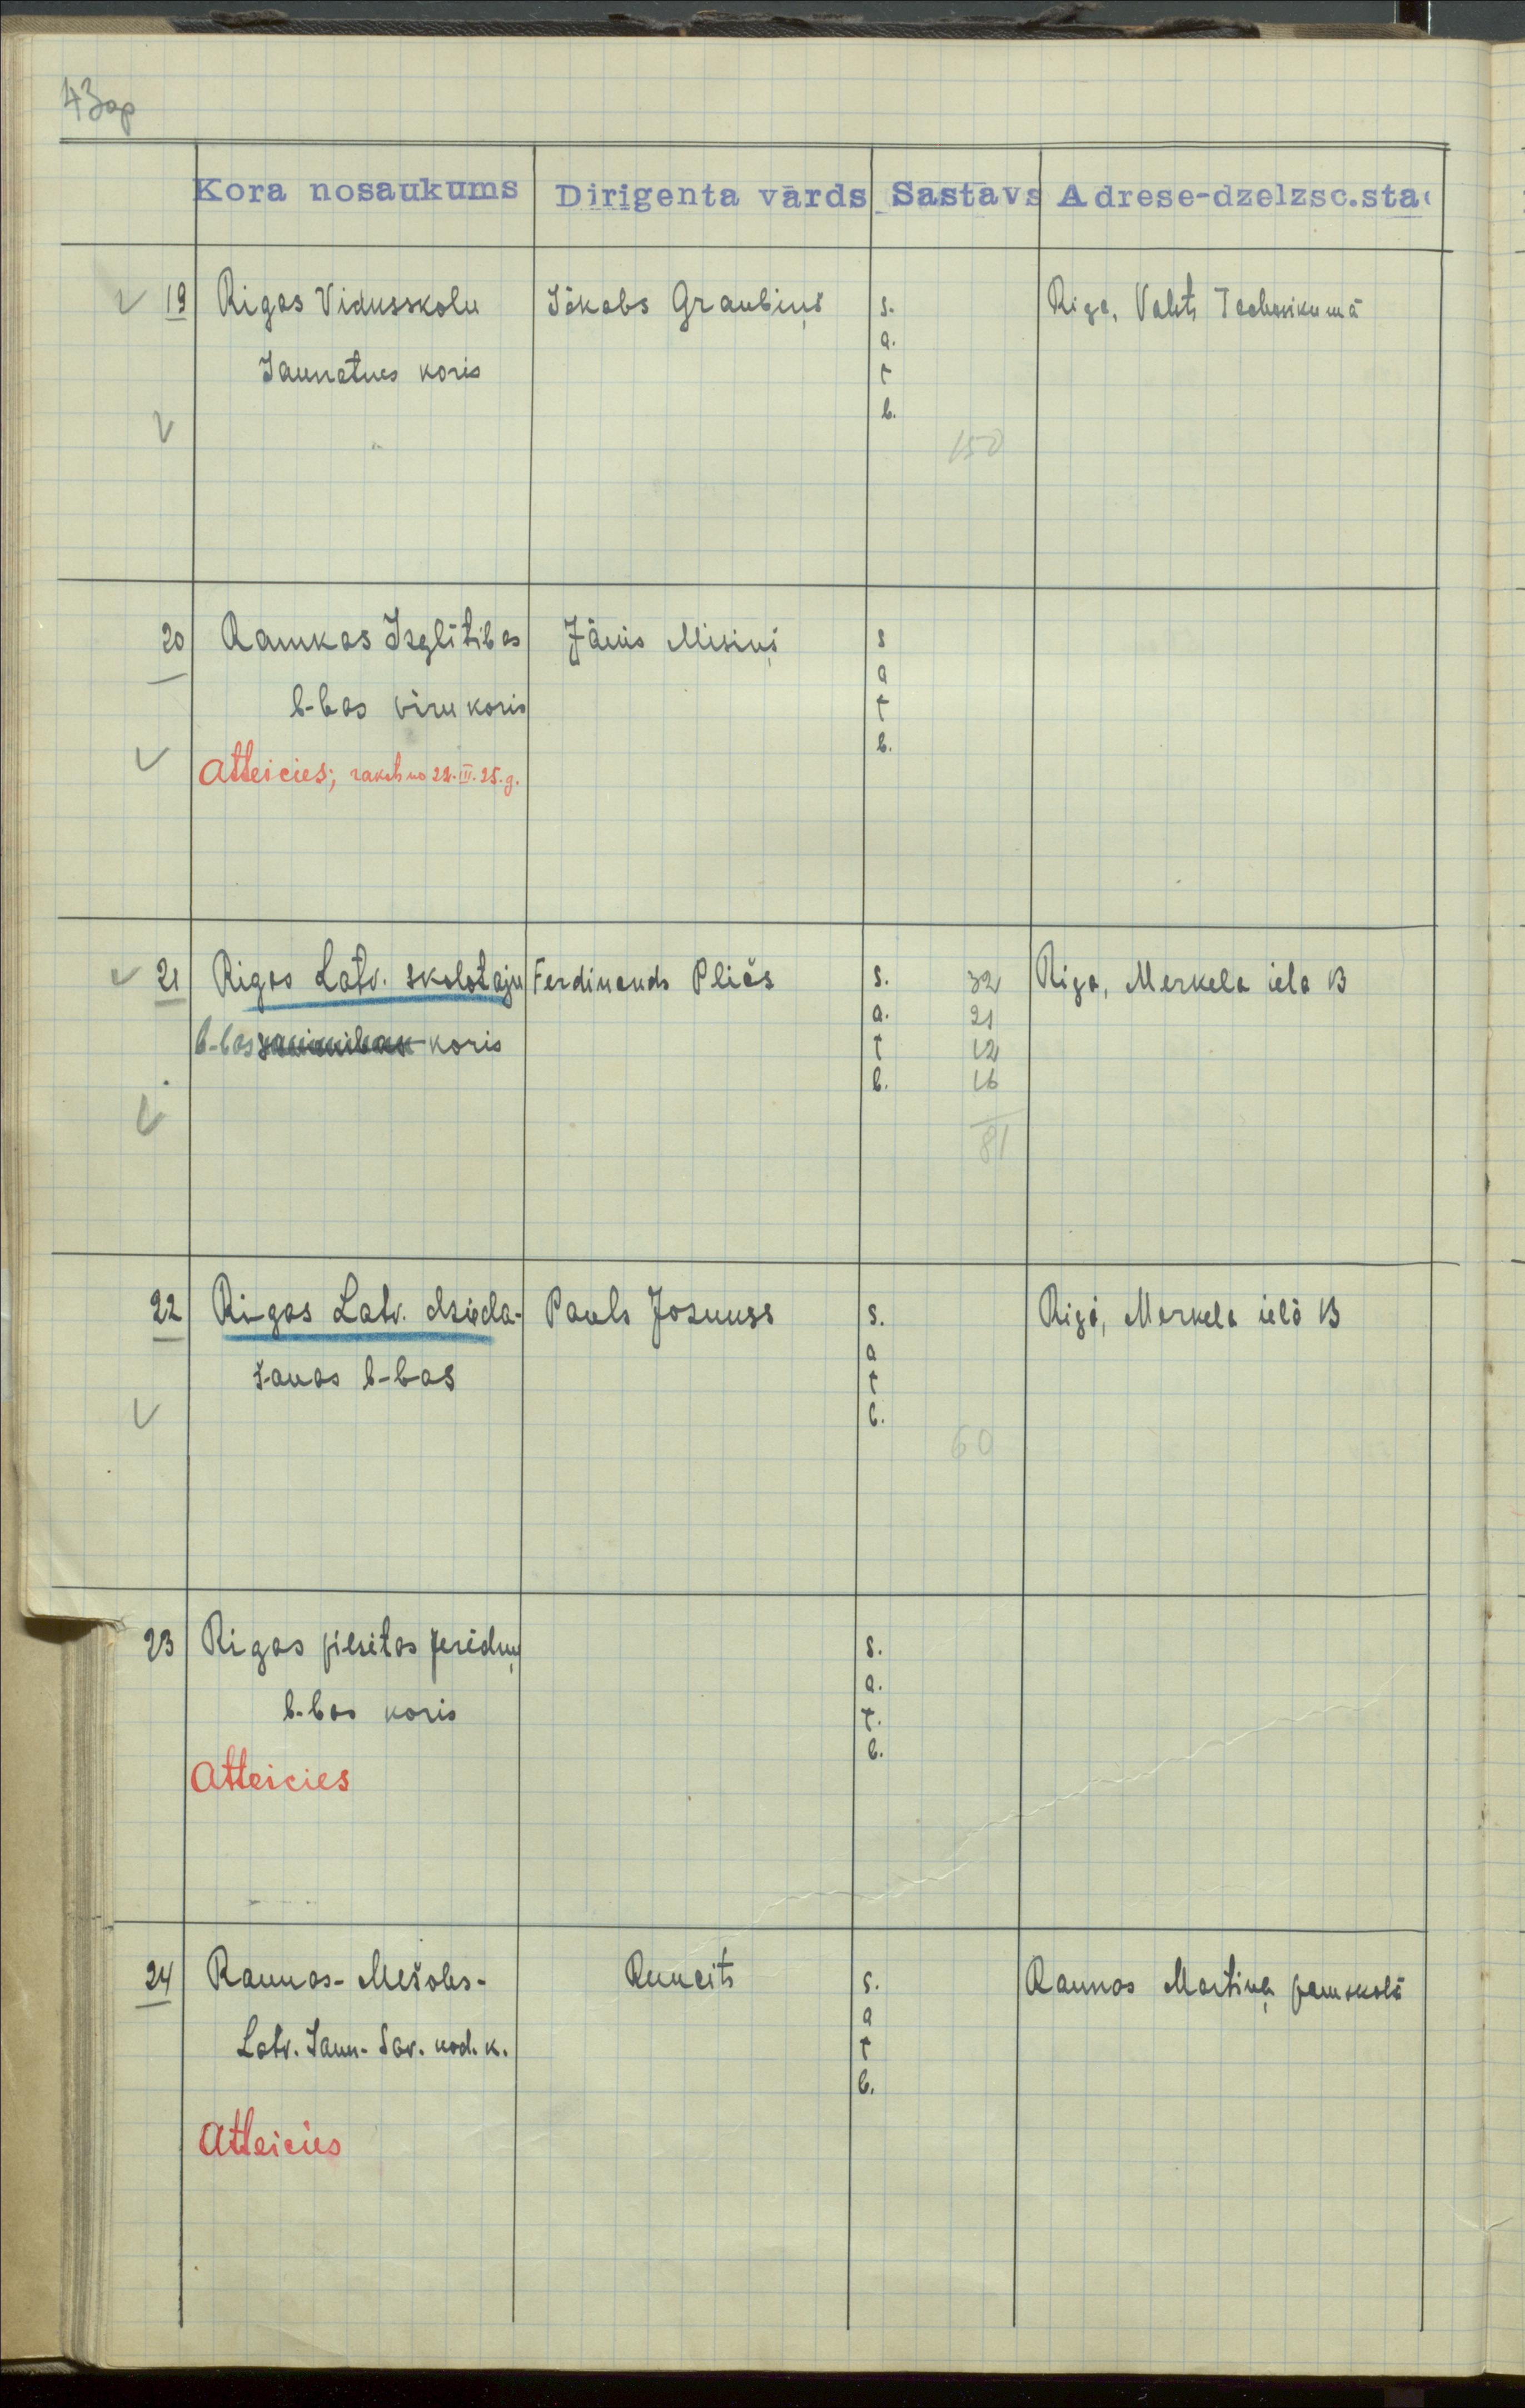 43op
Kora nosaukums Dirigenta vārds Sastavs Adrese-dzelzsc.sta
19 Rigas Vidusskolu Jākabs Graubiņš s. Rigā, Valsts Technikumā
a.
Jaunatnes koris t
b.
150
20 Raunkas Izglītibas Jānis Misiņš s
a
b-bas vīru koris t
b.
Atteicies; rakstu no 22.III.25.g.
21 Rigas Latv. skolotaju Ferdinands Pličs s. 32 Riga, Merkela iela 13
a. 21
b-bas koris t 12
b. 16
81
22 Rigas Latv. dzieda- Pauls Jozuuss s. Rigā, Merkela ielā 13
a
šanas b-bas t
b.
60
23 Rigas pilsētas s.
a.
b-bas koris t.
b.
Atteicies
24 Raunas-Mešoles- Runcits s. Raunas Martiņa pamskolā
a
Latv. Jaun-Sav. nod. k. t
b.
Atteicies